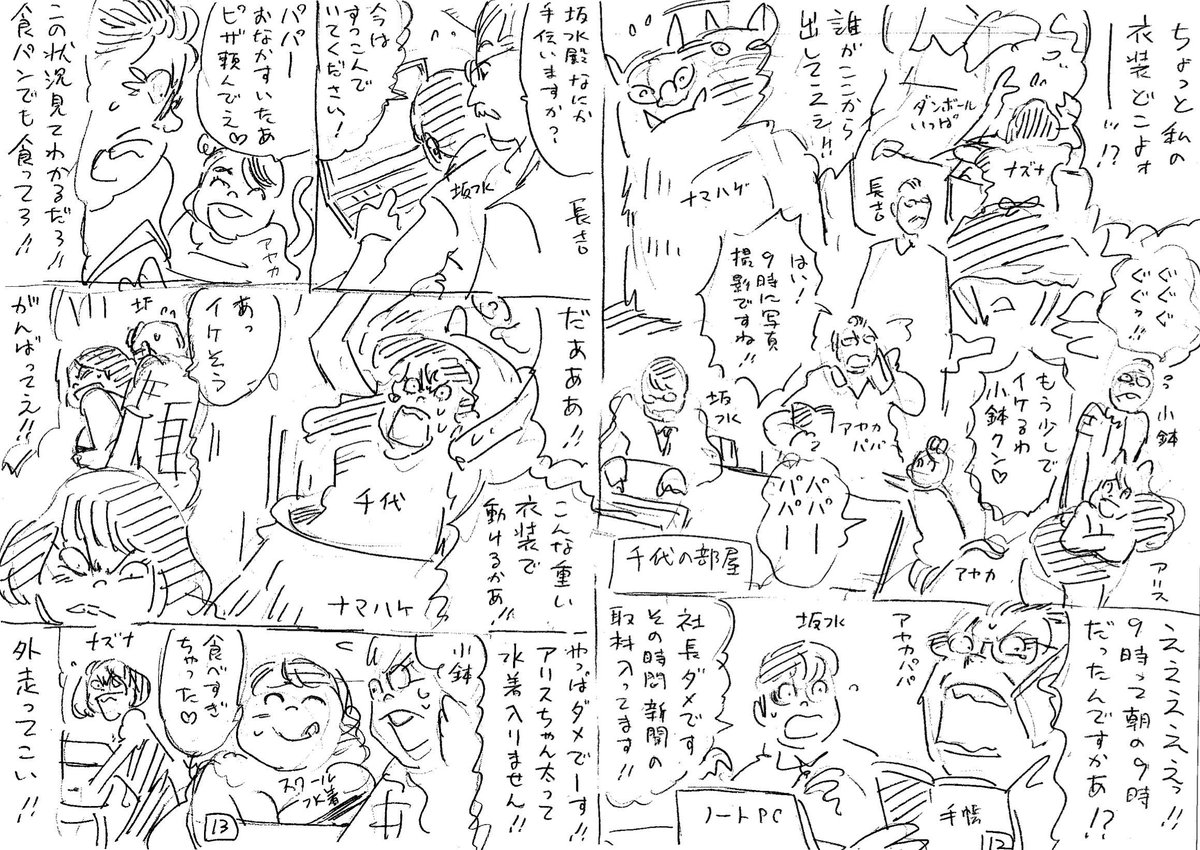 ちょっと私の
衣装どこよォ
ーー!!?
ナズナ
ダンボール
いっぱい
長吉
誰がここから
出してこえェ!!
ナマハゲ
ぐぐぐ
ぐぐっ!!
小鉢
もう少しで
イケるわ
小鉢クン♡
アリス
はい!
9時に写真
撮影ですね!!
アヤカ
パパ
坂水
パパ
パパ
ーー
アヤカ
千代の部屋
えええええっ!!
9時って朝の9時
だったんですかあ!?
アヤカパパ
手帳
12
坂水
社長ダメです
その時間新聞の
取材入ってます!!
ノートPC
坂水殿なにか
手伝いますか?
長吉
坂水
今は
すっこんで
いてください!
パパー
おなかすいたあ
ピザ頼んでえ♡
アヤカ
この状況見てわかるだろ!!
食パンでも食ってろ!!
だあああ!!
こんな重い
衣装で
動けるかあ!!
千代
ナマハゲ
あっ
イケそう
坂
がんばってえ!!
やっぱダメでーす!!
アリスちゃん太って
水着入りません!!
小鉢
食べすぎ
ちゃった♡
スクール
水着
ナズナ
外走ってこい!!
13